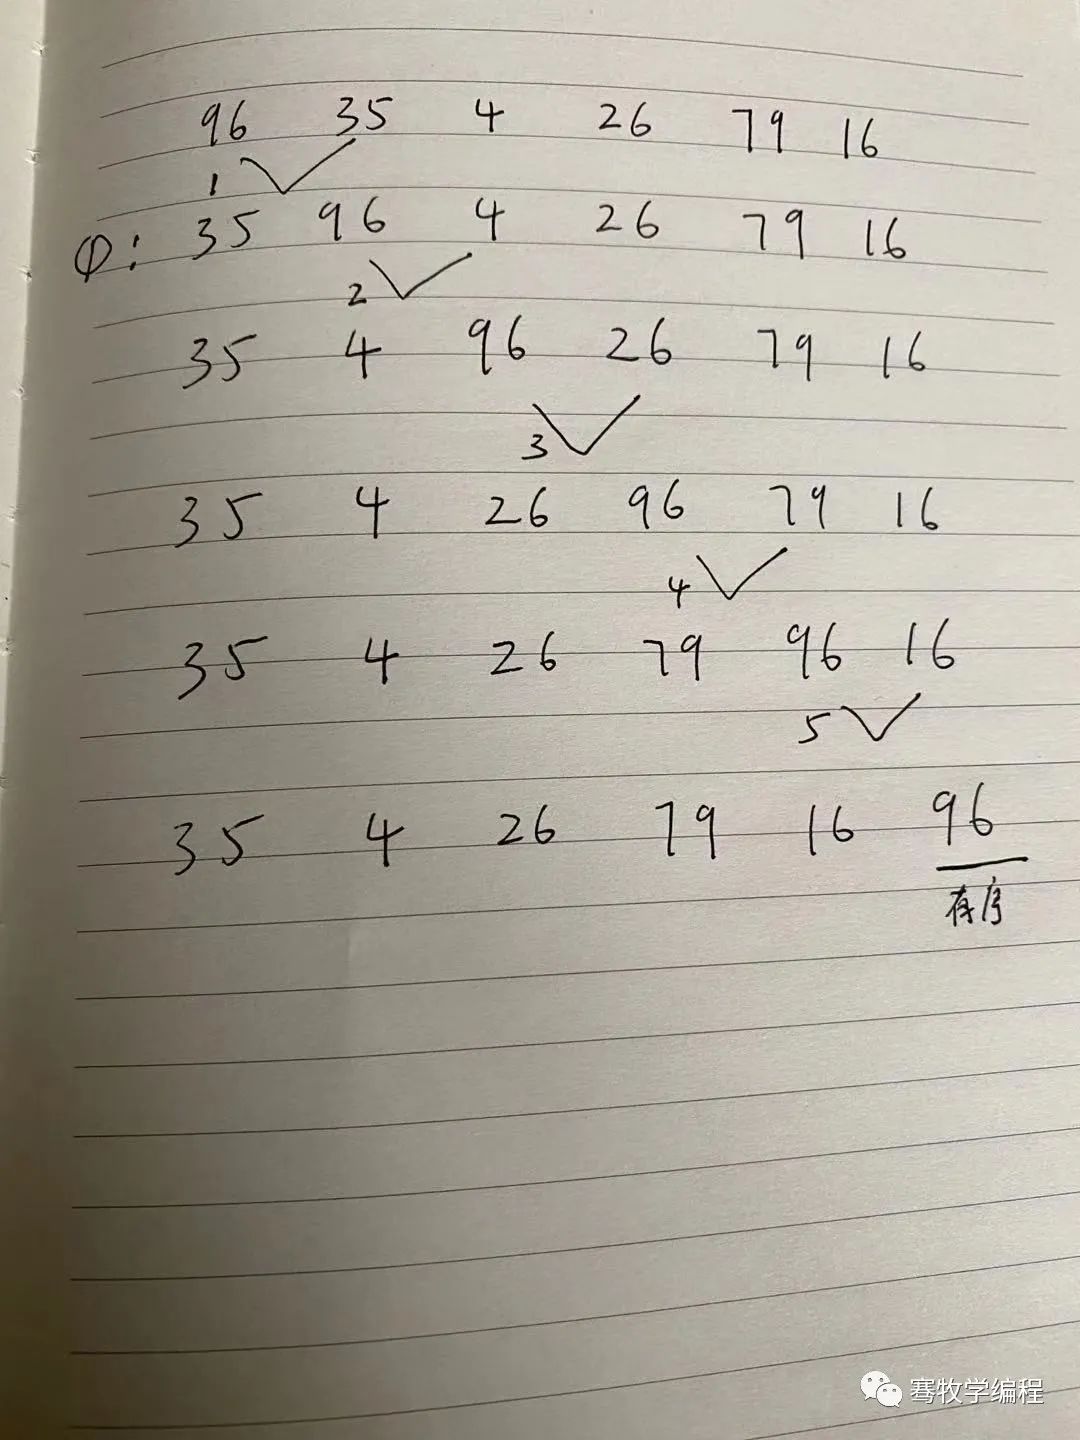 96 35 4 26 79 16
1
①: 35 96 4 26 79 16
2
35 4 96 26 79 16
3
35 4 26 96 79 16
4
35 4 26 79 96 16
5
35 4 26 79 16 96
有序
骞牧学编程